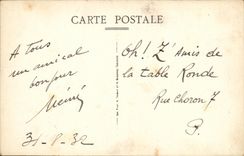 CARTE POSTALE
A tous
un amical
bonjour
Mémé
31-8-32
Oh! L'Amis de
la table Ronde
Rue Choron 7
P.